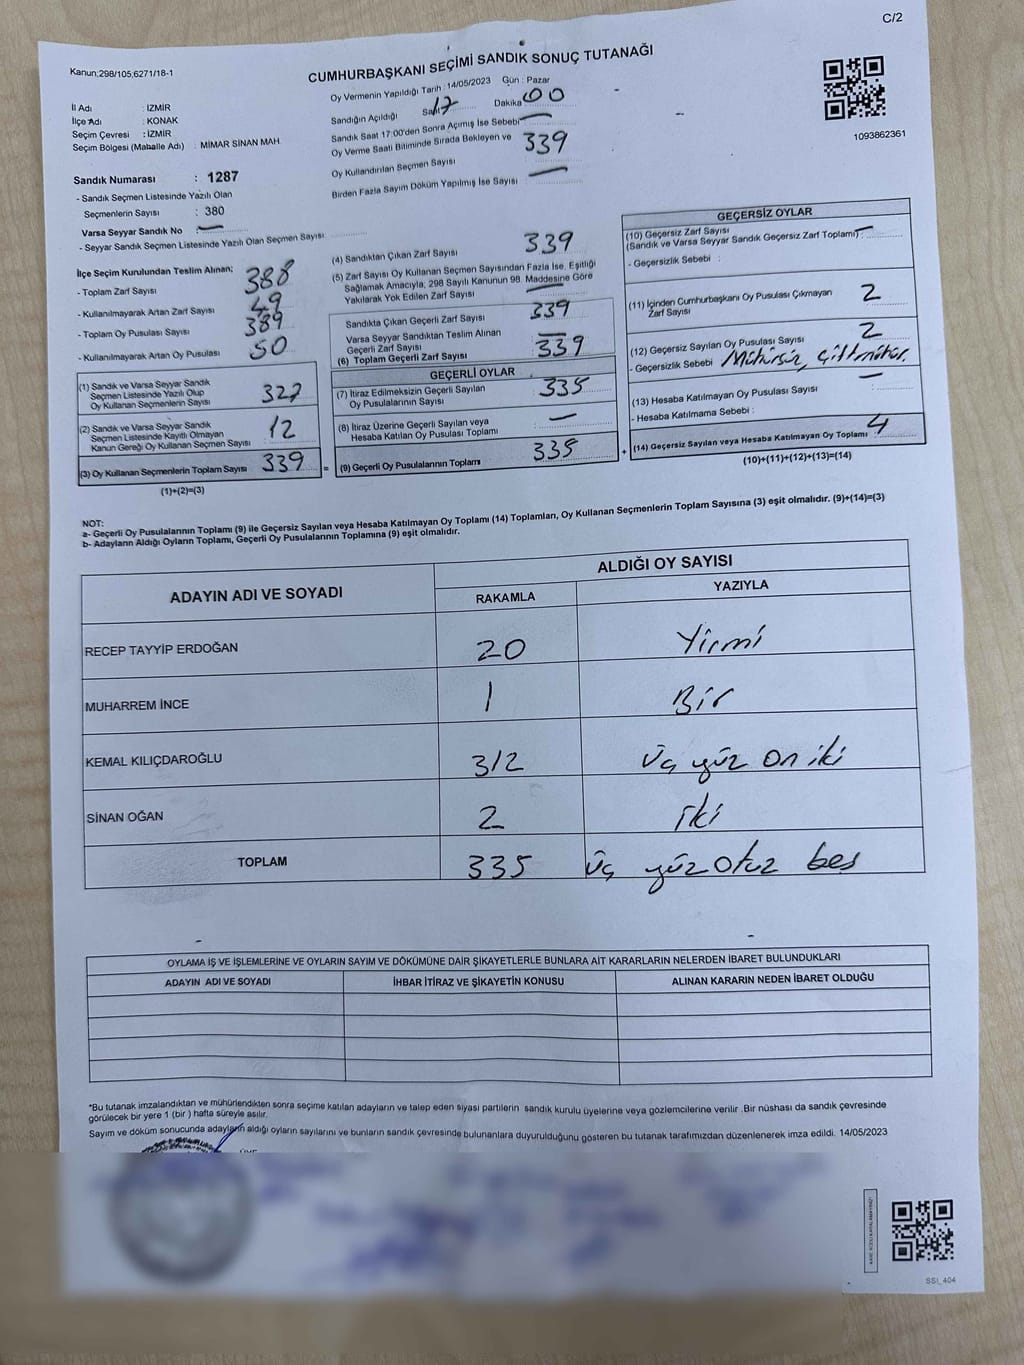 C/2
Kanun;298/105,6271/18-1
CUMHURBAŞKANI SEÇİMİ SANDIK SONUÇ TUTANAĞI
İl Adı : İZMİR
İlçe Adı : KONAK
Seçim Çevresi : İZMİR
Seçim Bölgesi (Mahalle Adı) : MİMAR SİNAN MAH
Sandık Numarası : 1287
- Sandık Seçmen Listesinde Yazılı Olan
Seçmenlerin Sayısı : 380
Varsa Seyyar Sandık No —
- Seyyar Sandık Seçmen Listesinde Yazılı Olan Seçmen Sayısı:
Oy Vermenin Yapıldığı Tarih : 14/05/2023 Gün : Pazar
Sandığın Açıldığı Saat 17 Dakika 00
Sandık Saat 17:00'den Sonra Açımış İse Sebebi —
Oy Verme Saati Bitiminde Sırada Bekleyen ve
Oy Kullandırılan Seçmen Sayısı 339
Birden Fazla Sayım Döküm Yapılmış İse Sayısı —
1093862361
İlçe Seçim Kurulundan Teslim Alınan;
- Toplam Zarf Sayısı 388
- Kullanılmayarak Artan Zarf Sayısı 49
- Toplam Oy Pusulası Sayısı 389
- Kullanılmayarak Artan Oy Pusulası 50
(1) Sandık ve Varsa Seyyar Sandık
Seçmen Listesinde Yazılı Olup
Oy Kullanan Seçmenlerin Sayısı 327
(2) Sandık ve Varsa Seyyar Sandık
Seçmen Listesinde Kayıtlı Olmayan
Kanun Gereği Oy Kullanan Seçmen Sayısı 12
(3) Oy Kullanan Seçmenlerin Toplam Sayısı 339 =
(1)+(2)=(3)
(4) Sandıktan Çıkan Zarf Sayısı 339
(5) Zarf Sayısı Oy Kullanan Seçmen Sayısından Fazla İse, Eşitliği
Sağlamak Amacıyla; 298 Sayılı Kanunun 98. Maddesine Göre
Yakılarak Yok Edilen Zarf Sayısı —
Sandıkta Çıkan Geçerli Zarf Sayısı 339
Varsa Seyyar Sandıktan Teslim Alınan
Geçerli Zarf Sayısı —
(6) Toplam Geçerli Zarf Sayısı 339
GEÇERLİ OYLAR
(7) İtiraz Edilmeksizin Geçerli Sayılan
Oy Pusulalarının Sayısı 335
(8) İtiraz Üzerine Geçerli Sayılan veya
Hesaba Katılan Oy Pusulası Toplamı —
(9) Geçerli Oy Pusulalarının Toplamı 335 +
GEÇERSİZ OYLAR
(10) Geçersiz Zarf Sayısı
(Sandık ve Varsa Seyyar Sandık Geçersiz Zarf Toplamı) —
- Geçersizlik Sebebi :
(11) İçinden Cumhurbaşkanı Oy Pusulası Çıkmayan
Zarf Sayısı 2
(12) Geçersiz Sayılan Oy Pusulası Sayısı 2
- Geçersizlik Sebebi Mühürsüz, Çift mühür.
(13) Hesaba Katılmayan Oy Pusulası Sayısı —
- Hesaba Katılmama Sebebi :
(14) Geçersiz Sayılan veya Hesaba Katılmayan Oy Toplamı 4
(10)+(11)+(12)+(13)=(14)
NOT:
a- Geçerli Oy Pusulalarının Toplamı (9) ile Geçersiz Sayılan veya Hesaba Katılmayan Oy Toplamı (14) Toplamları, Oy Kullanan Seçmenlerin Toplam Sayısına (3) eşit olmalıdır. (9)+(14)=(3)
b- Adayların Aldığı Oyların Toplamı, Geçerli Oy Pusulalarının Toplamına (9) eşit olmalıdır.
ADAYIN ADI VE SOYADI ALDIĞI OY SAYISI
RAKAMLA YAZIYLA
RECEP TAYYİP ERDOĞAN 20 Yirmi
MUHARREM İNCE 1 Bir
KEMAL KILIÇDAROĞLU 312 Üç yüz on iki
SİNAN OĞAN 2 iki
TOPLAM 335 üç yüz otuz beş
OYLAMA İŞ VE İŞLEMLERİNE VE OYLARIN SAYIM VE DÖKÜMÜNE DAİR ŞİKAYETLERLE BUNLARA AİT KARARLARIN NELERDEN İBARET BULUNDUKLARI
ADAYIN ADI VE SOYADI İHBAR İTİRAZ VE ŞİKAYETİN KONUSU ALINAN KARARIN NEDEN İBARET OLDUĞU
*Bu tutanak imzalandıktan ve mühürlendikten sonra seçime katılan adayların ve talep eden siyasi partilerin sandık kurulu üyelerine veya gözlemcilerine verilir .Bir nüshası da sandık çevresinde
görülecek bir yere 1 (bir ) hafta süreyle asılır.
Sayım ve döküm sonucunda adayların aldığı oyların sayılarını ve bunların sandık çevresinde bulunanlara duyurulduğunu gösteren bu tutanak tarafımızdan düzenlenerek imza edildi. 14/05/2023
SSI_404